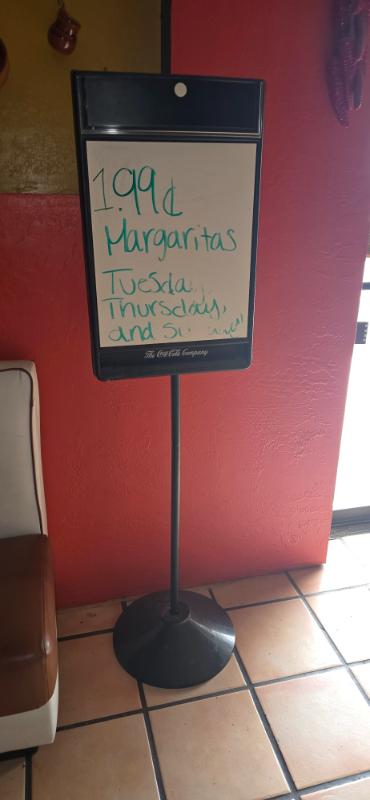 1.99¢
Margaritas
Tuesda
Thursday,
and
The Coca-Cola Company